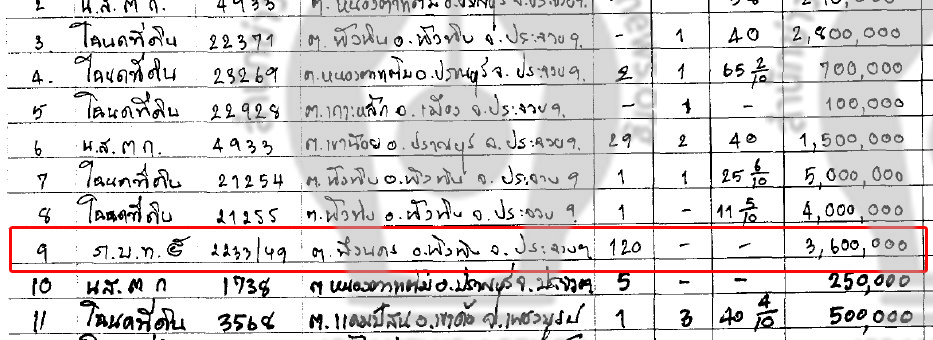 2 น.ส.๓ ก. 4933
3. โฉนดที่ดิน 22371 ต.หัวหิน อ.หัวหิน จ.ประจวบฯ - 1 40 2,800,000
4. โฉนดที่ดิน 23269 ต.หนองตาแต้ม อ.ปราณบุรี จ.ประจวบฯ 2 1 65 2/10 700,000
5 โฉนดที่ดิน 22928 ต.เกาะหลัก อ.เมือง จ.ประจวบฯ - 1 - 100,000
6 น.ส.๓ ก. 4933 ต.เขาน้อย อ.ปราณบุรี จ.ประจวบฯ 29 2 40 1,500,000
7 โฉนดที่ดิน 21254 ต.หัวหิน อ.หัวหิน จ.ประจวบฯ 1 1 25 6/10 5,000,000
8 โฉนดที่ดิน 21255 ต.หัวหิน อ.หัวหิน จ.ประจวบฯ 1 - 11 5/10 4,000,000
9 ภ.บ.ท. ๕ 2233/49 อ.หัวหิน จ.ประจวบฯ 120 - - 3,600,000
10 น.ส.๓ ก 1738 ต.หนองตาแต้ม อ.ปราณบุรี จ.ประจวบฯ 5 - - 250,000
11 โฉนดที่ดิน 3568 ต.แคมป์สน อ.เขาค้อ จ.เพชรบูรณ์ 1 3 40 4/10 500,000